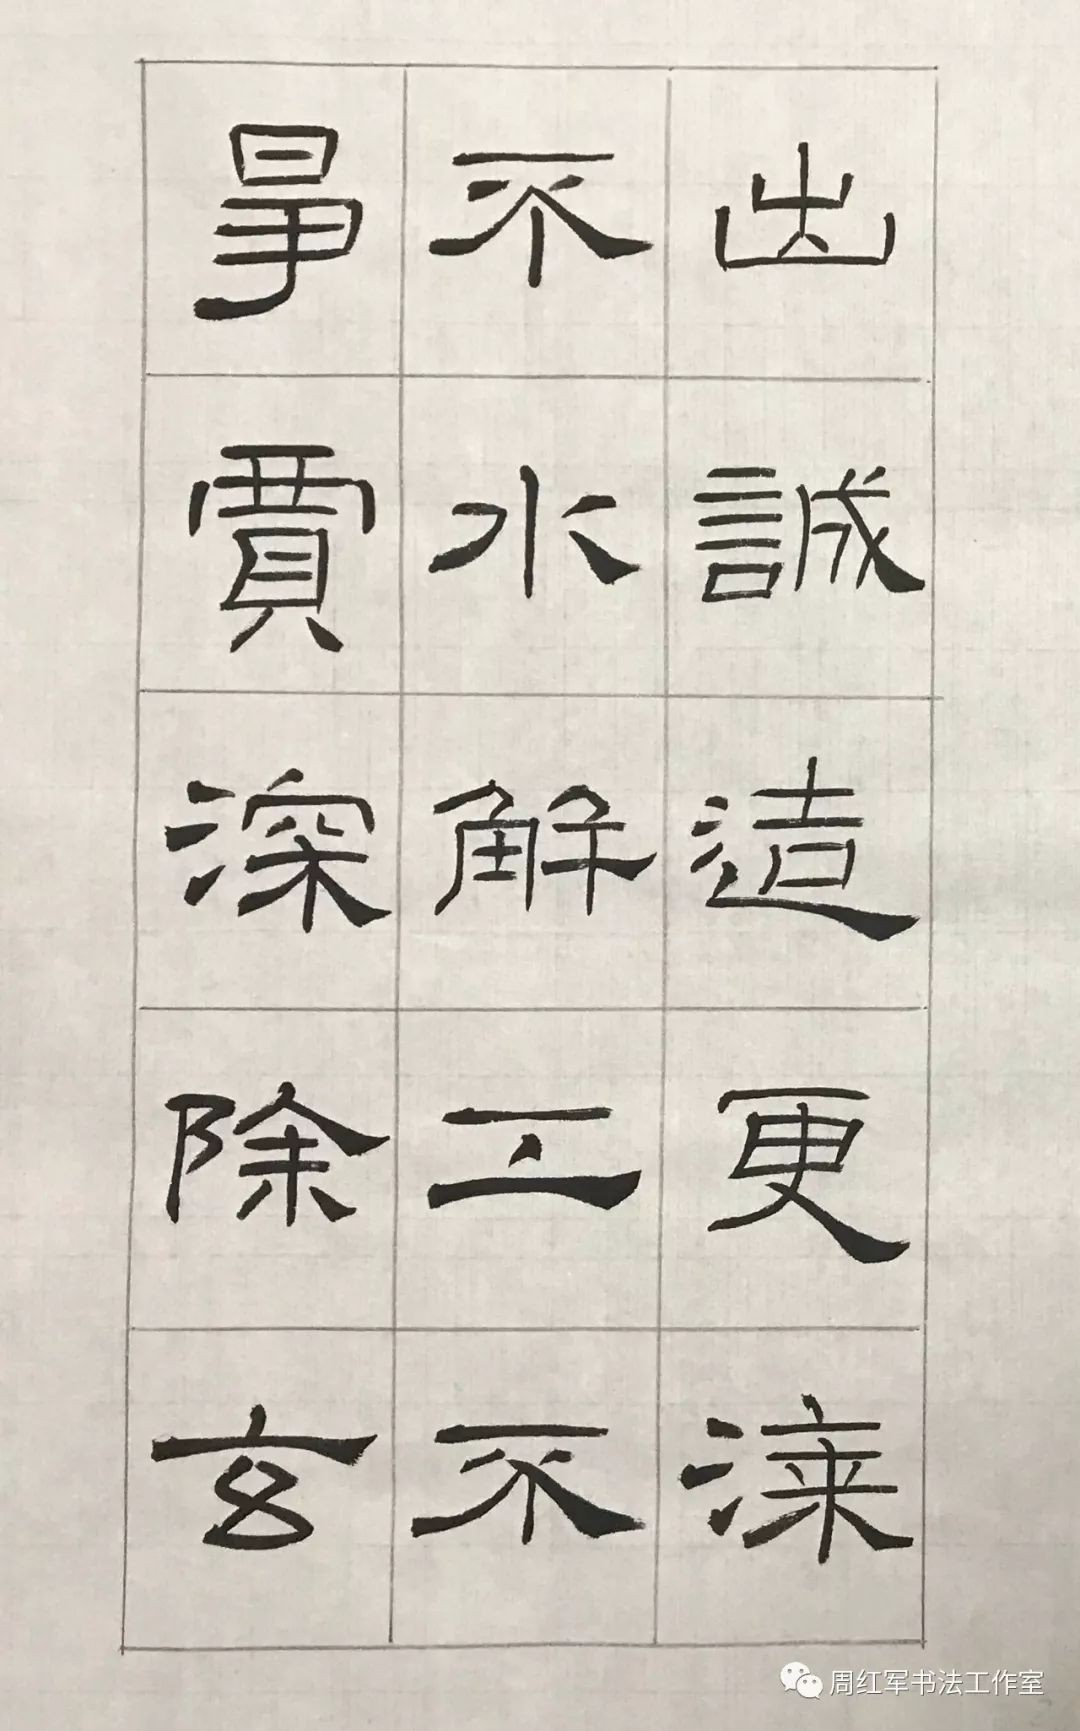 出誠造更漆
不水解工不
爭賈深除玄
周红军书法工作室